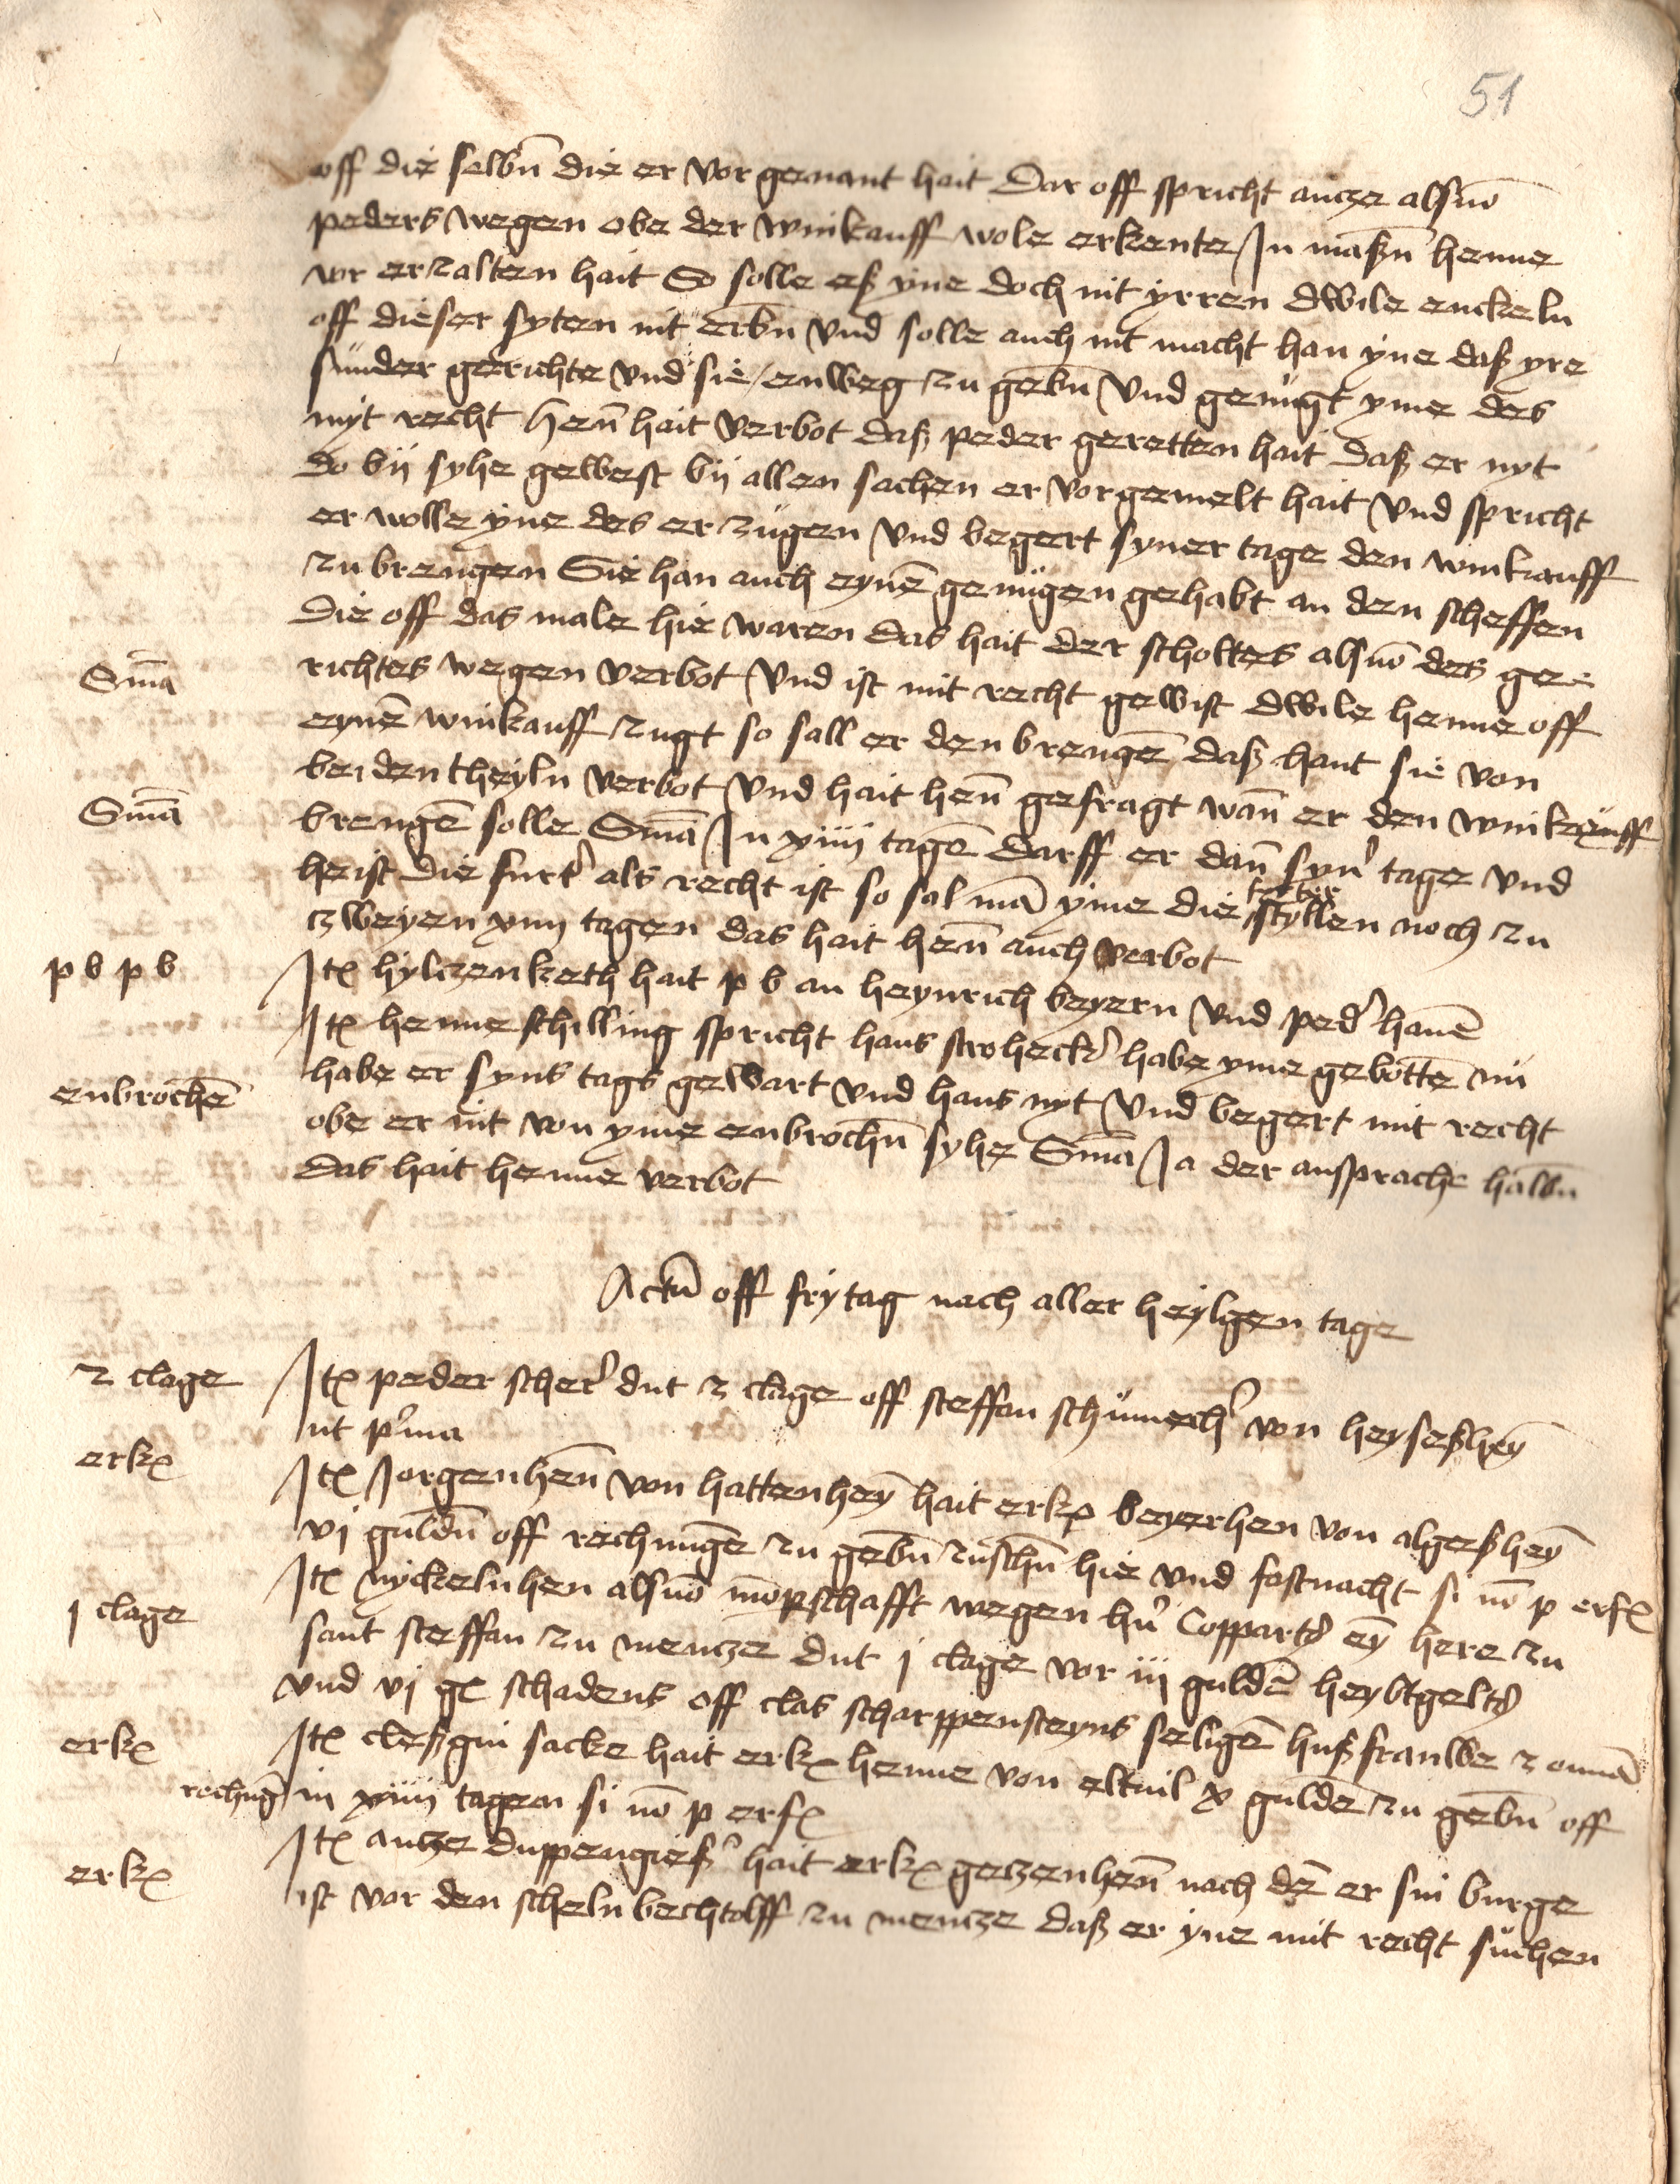 51
off die selbn̄ die er vor genant hait Dar off spricht antze als vō
peders wegen obe der winkauff wole erkente In maßn̄ henne
vor erzalten hait So solle eß yne doch nit yrren dwile enckeln
off dieser syten nit erbn̄ vnd solle auch nit macht han yne daß yre
sunder gerichte vnd sie enweg zu gebn̄ vnd genugt yme des
myt recht Hen̄ hait verbot daß peder geretten hait daß er nyt
do bÿ syhe gewest bÿ allen sachen er vorgemelt hait vnd spricht
er wolle yne des erzugen vnd begert syner tage den winkauff
zu brengen Sie han auch eynē genügen gehabt an den scheffen
die off das male hie waren das hait der scholtes als vō des ge-
Sm̄a
richtes wegen verbot vnd ist mit recht gewist dwile henne off
eynē winkauff zugt so sall er den brengē daß hant sie von
beiden theyln verbot vnd hait hen̄ gefragt wan̄ er den winkeuff
Sm̄a
brengē solle Sm̄a In xiiij tagē Darff er dan̄ syn' tage vnd
heist die furt' als recht ist so sal mā yme die furter styllen noch zu
zweyen xiiij tagen das hait hen̄ auch verbot
p b p b
Itꝫ hyltzenketh hait p b an heynrich beyern vnd ped' hanē
Itꝫ henne schilling spricht hans stroheck' habe yme gebottē nü
habe er syns tags gewart vnd hans nyt vnd begert mit recht
enbrochē
obe er nit von yme enbrochn̄ syhe Sm̄a Ja der ansprache halbn̄
das hait henne verbot
Actū off frytag nach aller heylgen tage
2 clage
Itꝫ peder scher' dut 2 clage off steffan schumech' von heyseßhey̅
ut p'ma
erkꝫ
Itꝫ Jorgenhen̄ von hattenhey̅ hait erkꝫ beyerhen von algeßhey̅
vj guldn̄ off rechnūge zu gebn̄ zuschn̄ hie vnd fastnacht si nō p erfꝫ
j clage
Itꝫ nyckelnhen als vō mōpschafft wegen hn' Coppartꝭ ey̅ here zu
sant steffan zu mentze dut j clage vor iij guldē heybtgeltꝭ
vnd vj gꝫ schadens off clas scharppensteyns seligē hußfrauwe 2 om̄ā
erkꝫ
Itꝫ cleßgin sacke hait erkꝫ henne von eltuil x guldē zu gebn̄ off
rechnūg in xiiij tagen si nō p erfꝫ
erkꝫ
Itꝫ antze duppengieß' hait erkꝫ getzenhen̄ nach dē er sin burge
ist vor den scheln bechtolff zu mentze daß er yne mit recht suchen